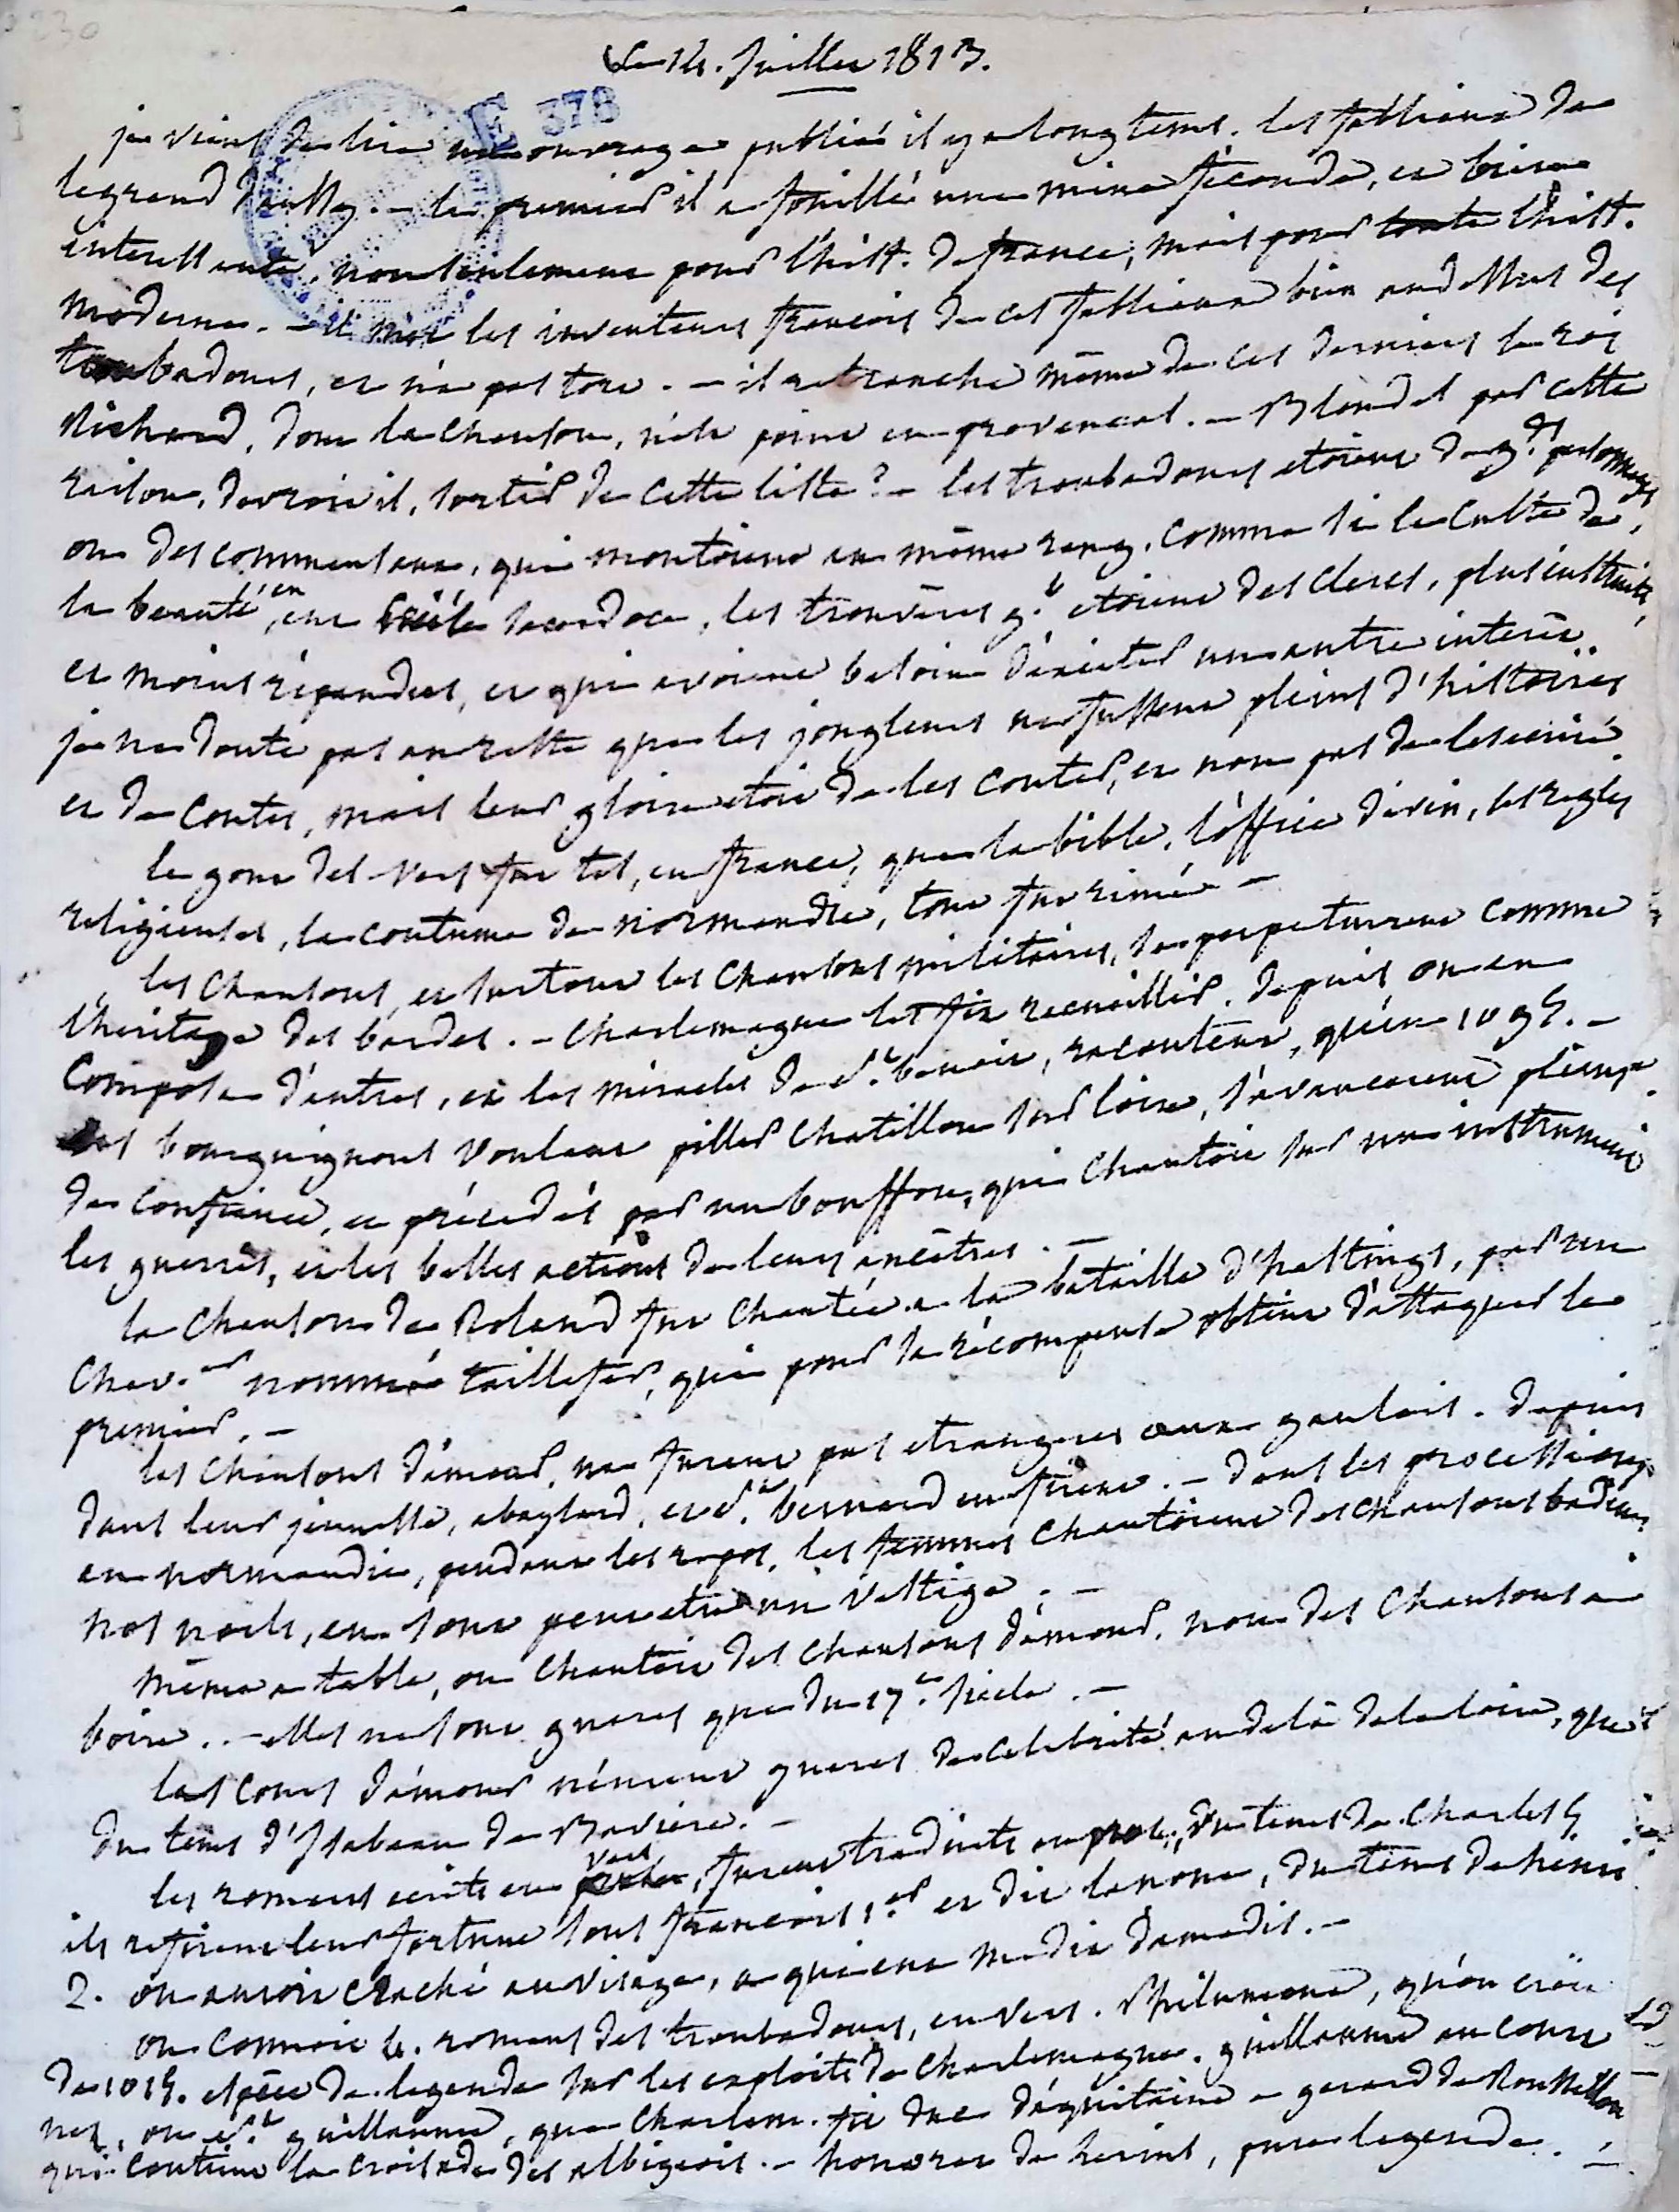 Le 14. Juillet 1813.
E 378
je viens de lire un ouvrage publié il y a longtems. les fabliaux de
legrand d'aussy. – le premier il a fouillé une mine féconde, et bien
interessante, non seulement pour l'hist. de france, mais pour toute l'hist.
moderne. – il met les inventeurs françois de ces fabliaux bien audessus des
troubadours, et n'a pas tort. – il retranche même de ces derniers le roi
Richard, dont la chanson, n'est point en provencal. – Blondel par cette
raison, devroit il, sortir de cette liste? – les troubadours etoient de gds personnages
ou des commensaux, qui montoient au même rang, comme si le culte de
la beauté, en eut sacerdoce, les trouvères gt etoient des clercs, plus instruits,
et moins répandus, et qui avoient besoin d'exciter un autre interêt.
je ne doute pas au reste que les jongleurs ne fussent pleins d'histoires
et de contes, mais leur gloire etoit de les conter, et non pas de les ecrire.
le gout des vers fut tel, en france, que la bible, l'office divin, les regles
religieuses, la coutume de normandie, tout fut rimé –
les chansons, et surtout les chansons militaires, se perpetuerent comme
l'heritage des bardes. – Charlemagne les fit recueillir. depuis on en
composa d'autres, et les miracles de st. benoit, racontent, qu'en 10 95. –
les bourguignons voulant piller Chatillon sur loire, s'avancerent pleins
de confiance, et précédés par un bouffon, qui chantoit sur un instrument
les guerres, et les belles actions de leurs ancêtres. –
la chanson de Roland fut chantée a la bataille d'hastings, par un
Chev.er nommé taillefer, qui pour sa récompense obtint d'attaquer le
premier. –
les chansons d'amour, ne furent pas etrangeres aux gaulois. depuis
dans leur jeunesse, abaylard, et st. bernard en firent. – dans les processions
en normandie, pendant les repos, les femmes chantoient des chansons badines
nos noels, en sont peut etre un vestige. –
même a table, on chantoit des chansons d'amour, non des chansons a
boire. – elles ne sont gueres que du 17.e siecle. –
les cours d'amour n'eurent gueres de celebrité au delà de la loire, que
du tems d'Isabeau de Baviere. –
les romans ecrits en vers, furent traduits en prose, du tems de Charles 5
ils refirent leur fortune sous françois 1.er et dit lanoue, du tems de henri
2. on auroit craché au visage, a qui eut medit d'amadis. –
on connoit 4. romans des troubadours, en vers. Philumena, qu'on croit
de 1015. espèce de legende sur les exploits de Charlemagne. guillaume au court
nez, ou st. guillaume, que Charlem. fit duc d'aquitaine – gerard de Roussillon
qui contient la croisade des albigeois. – honorat de lerins, pure legende. –